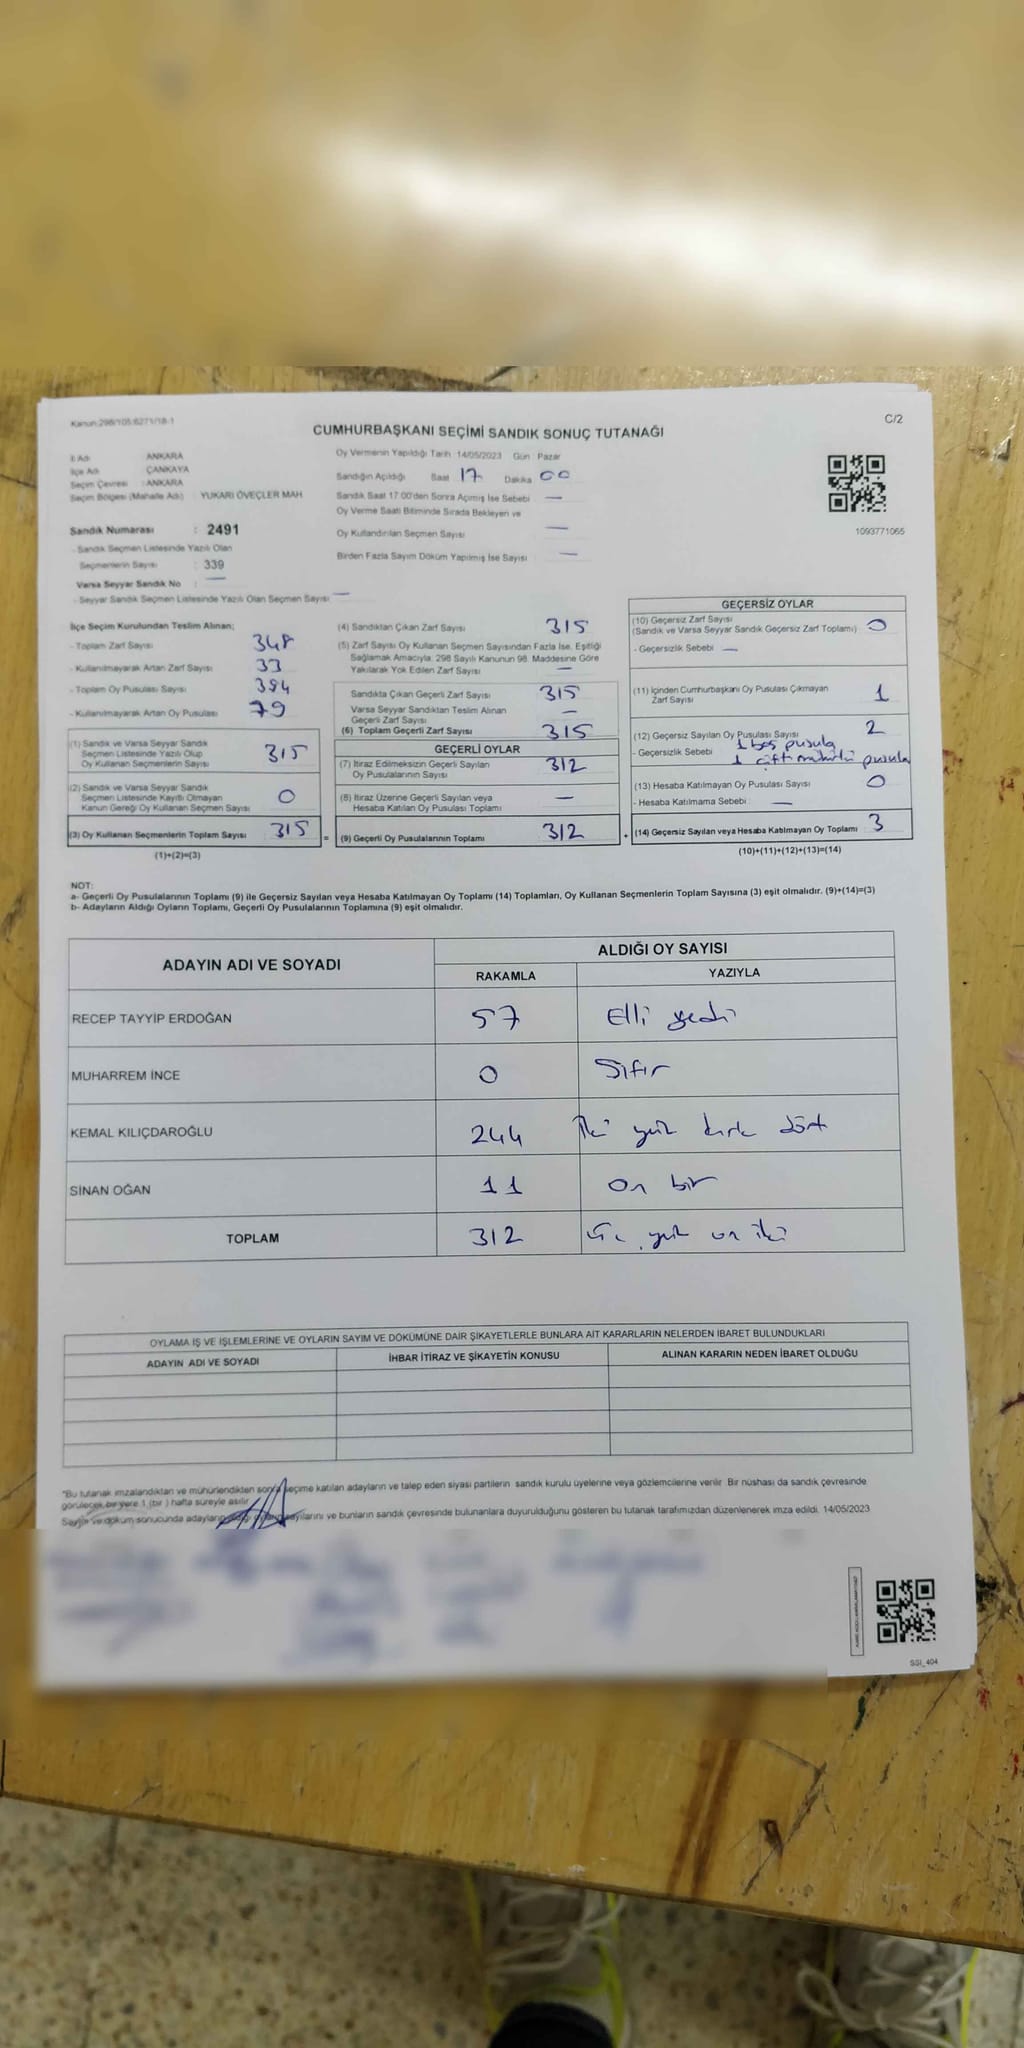 Kanun:298/105;6271/18-1
C/2
CUMHURBAŞKANI SEÇİMİ SANDIK SONUÇ TUTANAĞI
İl Adı : ANKARA
İlçe Adı : ÇANKAYA
Seçim Çevresi : ANKARA
Seçim Bölgesi (Mahalle Adı) : YUKARI ÖVEÇLER MAH
Sandık Numarası : 2491
- Sandık Seçmen Listesinde Yazılı Olan
Seçmenlerin Sayısı : 339
Varsa Seyyar Sandık No : —
- Seyyar Sandık Seçmen Listesinde Yazılı Olan Seçmen Sayısı —
Oy Vermenin Yapıldığı Tarih 14/05/2023 Gün : Pazar
Sandığın Açıldığı Saat 17 Dakika 00
Sandık Saat 17:00'den Sonra Açılmış İse Sebebi —
Oy Verme Saati Bitiminde Sırada Bekleyen ve
Oy Kullandırılan Seçmen Sayısı —
Birden Fazla Sayım Döküm Yapılmış İse Sayısı —
1093771065
İlçe Seçim Kurulundan Teslim Alınan;
- Toplam Zarf Sayısı 348
- Kullanılmayarak Artan Zarf Sayısı 33
- Toplam Oy Pusulası Sayısı 394
- Kullanılmayarak Artan Oy Pusulası 79
(1) Sandık ve Varsa Seyyar Sandık
Seçmen Listesinde Yazılı Olup
Oy Kullanan Seçmenlerin Sayısı 315
(2) Sandık ve Varsa Seyyar Sandık
Seçmen Listesinde Kayıtlı Olmayan
Kanun Gereği Oy Kullanan Seçmen Sayısı 0
(3) Oy Kullanan Seçmenlerin Toplam Sayısı 315 =
(1)+(2)=(3)
(4) Sandıktan Çıkan Zarf Sayısı 315
(5) Zarf Sayısı Oy Kullanan Seçmen Sayısından Fazla İse, Eşitliği
Sağlamak Amacıyla, 298 Sayılı Kanunun 98. Maddesine Göre
Yakılarak Yok Edilen Zarf Sayısı —
Sandıkta Çıkan Geçerli Zarf Sayısı 315
Varsa Seyyar Sandıktan Teslim Alınan
Geçerli Zarf Sayısı —
(6) Toplam Geçerli Zarf Sayısı 315
GEÇERLİ OYLAR
(7) İtiraz Edilmeksizin Geçerli Sayılan
Oy Pusulalarının Sayısı 312
(8) İtiraz Üzerine Geçerli Sayılan veya
Hesaba Katılan Oy Pusulası Toplamı —
(9) Geçerli Oy Pusulalarının Toplamı 312 +
GEÇERSİZ OYLAR
(10) Geçersiz Zarf Sayısı
(Sandık ve Varsa Seyyar Sandık Geçersiz Zarf Toplamı) 0
- Geçersizlik Sebebi —
(11) İçinden Cumhurbaşkanı Oy Pusulası Çıkmayan
Zarf Sayısı 1
(12) Geçersiz Sayılan Oy Pusulası Sayısı 2
- Geçersizlik Sebebi 1 boş pusula
1 çift mühürlü pusula
(13) Hesaba Katılmayan Oy Pusulası Sayısı 0
- Hesaba Katılmama Sebebi : —
(14) Geçersiz Sayılan veya Hesaba Katılmayan Oy Toplamı 3
(10)+(11)+(12)+(13)=(14)
NOT:
a- Geçerli Oy Pusulalarının Toplamı (9) ile Geçersiz Sayılan veya Hesaba Katılmayan Oy Toplamı (14) Toplamları, Oy Kullanan Seçmenlerin Toplam Sayısına (3) eşit olmalıdır. (9)+(14)=(3)
b- Adayların Aldığı Oyların Toplamı, Geçerli Oy Pusulalarının Toplamına (9) eşit olmalıdır.
ADAYIN ADI VE SOYADI ALDIĞI OY SAYISI
RAKAMLA YAZIYLA
RECEP TAYYİP ERDOĞAN 57 Elli yedi
MUHARREM İNCE 0 Sıfır
KEMAL KILIÇDAROĞLU 244 İki yüz kırk dört
SİNAN OĞAN 11 On bir
TOPLAM 312 Üç yüz on iki
OYLAMA İŞ VE İŞLEMLERİNE VE OYLARIN SAYIM VE DÖKÜMÜNE DAİR ŞİKAYETLERLE BUNLARA AİT KARARLARIN NELERDEN İBARET BULUNDUKLARI
ADAYIN ADI VE SOYADI İHBAR İTİRAZ VE ŞİKAYETİN KONUSU ALINAN KARARIN NEDEN İBARET OLDUĞU
*Bu tutanak imzalandıktan ve mühürlendikten sonra seçime katılan adayların ve talep eden siyasi partilerin sandık kurulu üyelerine veya gözlemcilerine verilir. Bir nüshası da sandık çevresinde
görülecek bir yere 1 (bir ) hafta süreyle asılır.
Sayım ve döküm sonucunda adayların aldığı oyların sayılarını ve bunların sandık çevresinde bulunanlara duyurulduğunu gösteren bu tutanak tarafımızdan düzenlenerek imza edildi. 14/05/2023
SSI_404